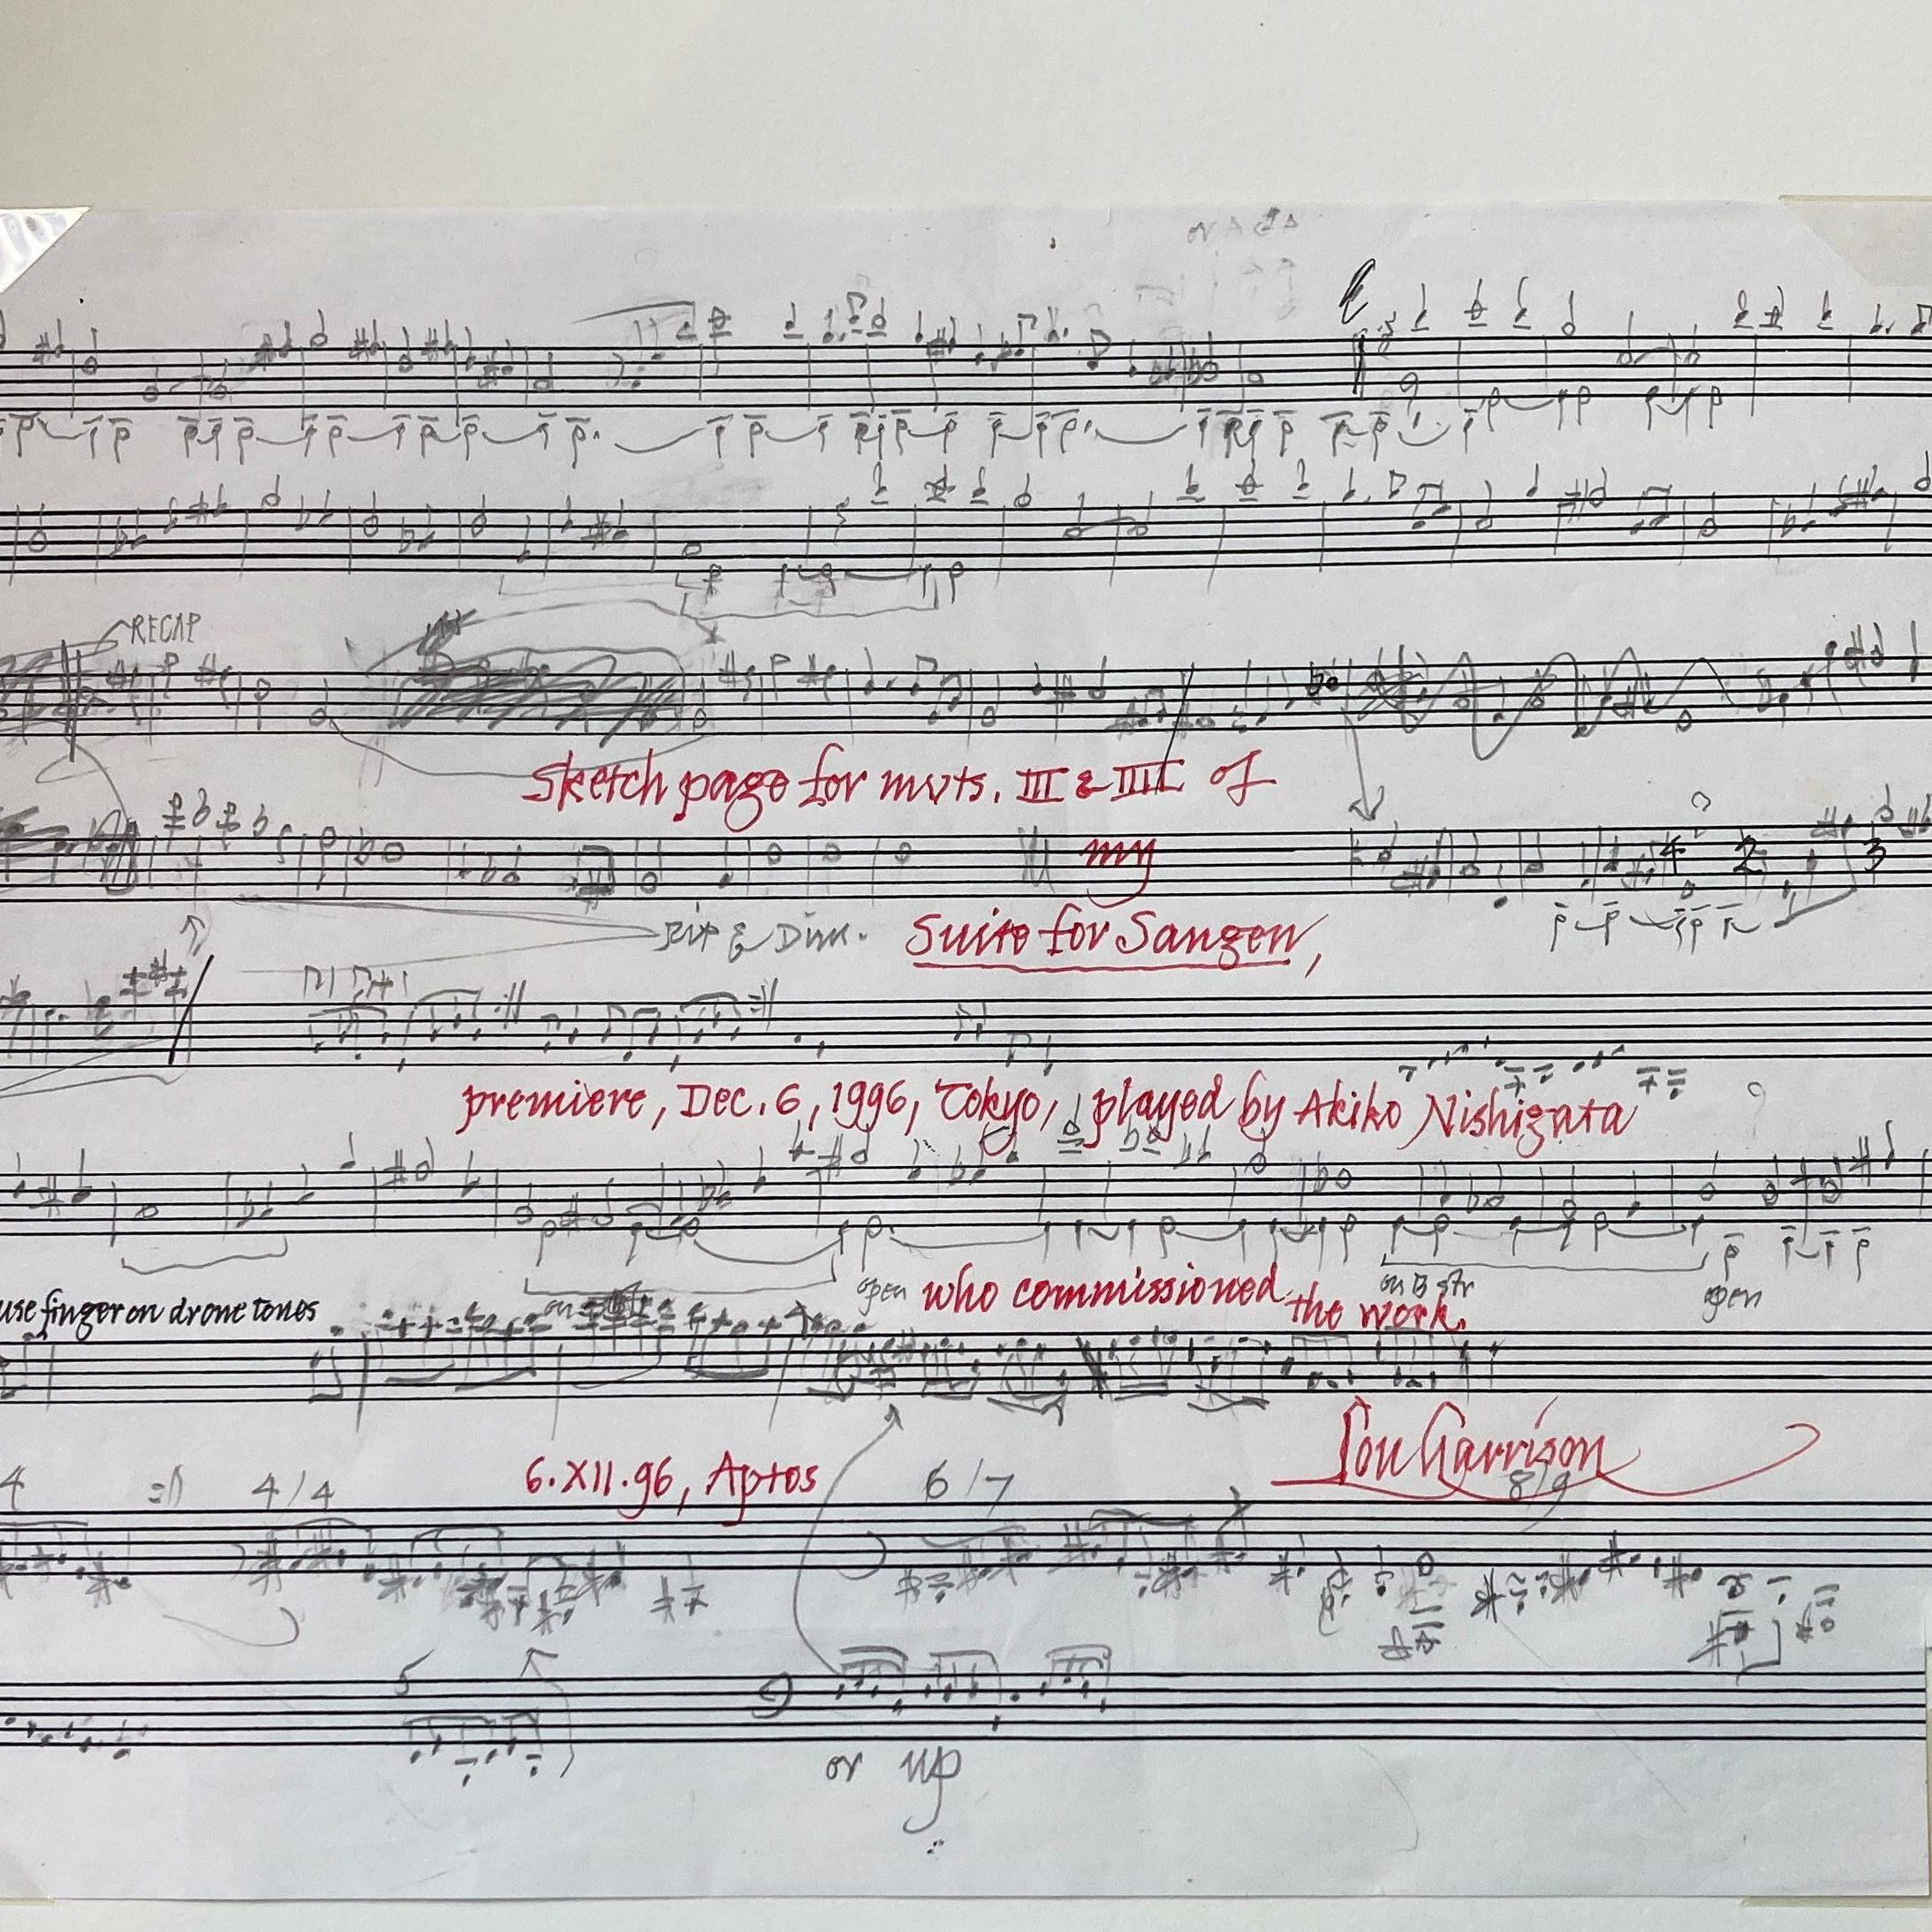 or A G A
RECAP
Sketch page for mvts. III & IIII of
4 2 3
my
Rit & Dim.
Suite for Sangen,
premiere, Dec. 6, 1996, Tokyo, played by Akiko Nishigata
open who commissioned on B str open
use finger on drone tones
the work.
Lou Harrison
4 4/4 6.XII.96, Aptos 6/7 8/9
5
or up